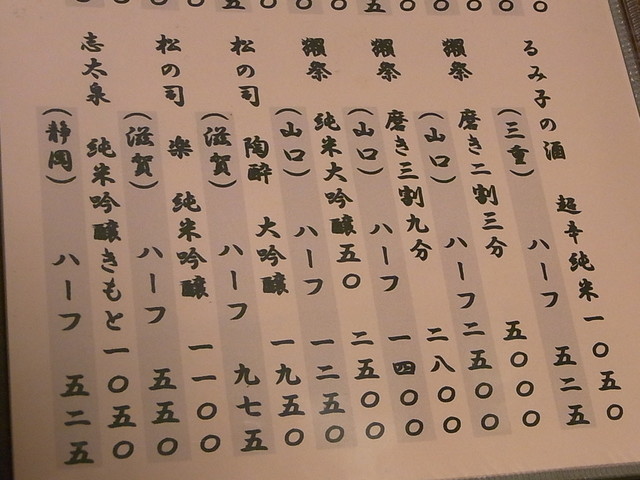 るみ子の酒 超辛純米 一〇五〇
(三重) ハーフ 五二五
獺祭 磨き二割三分 五〇〇〇
(山口) ハーフ 二五〇〇
獺祭 磨き三割九分 二八〇〇
(山口) ハーフ 一四〇〇
獺祭 純米大吟醸五〇 二五〇〇
(山口) ハーフ 一二五〇
松の司 陶酔 大吟醸 一九五〇
(滋賀) ハーフ 九七五
松の司 楽 純米吟醸 一一〇〇
(滋賀) ハーフ 五五〇
志太泉 純米吟醸きもと 一〇五〇
(静岡) ハーフ 五二五